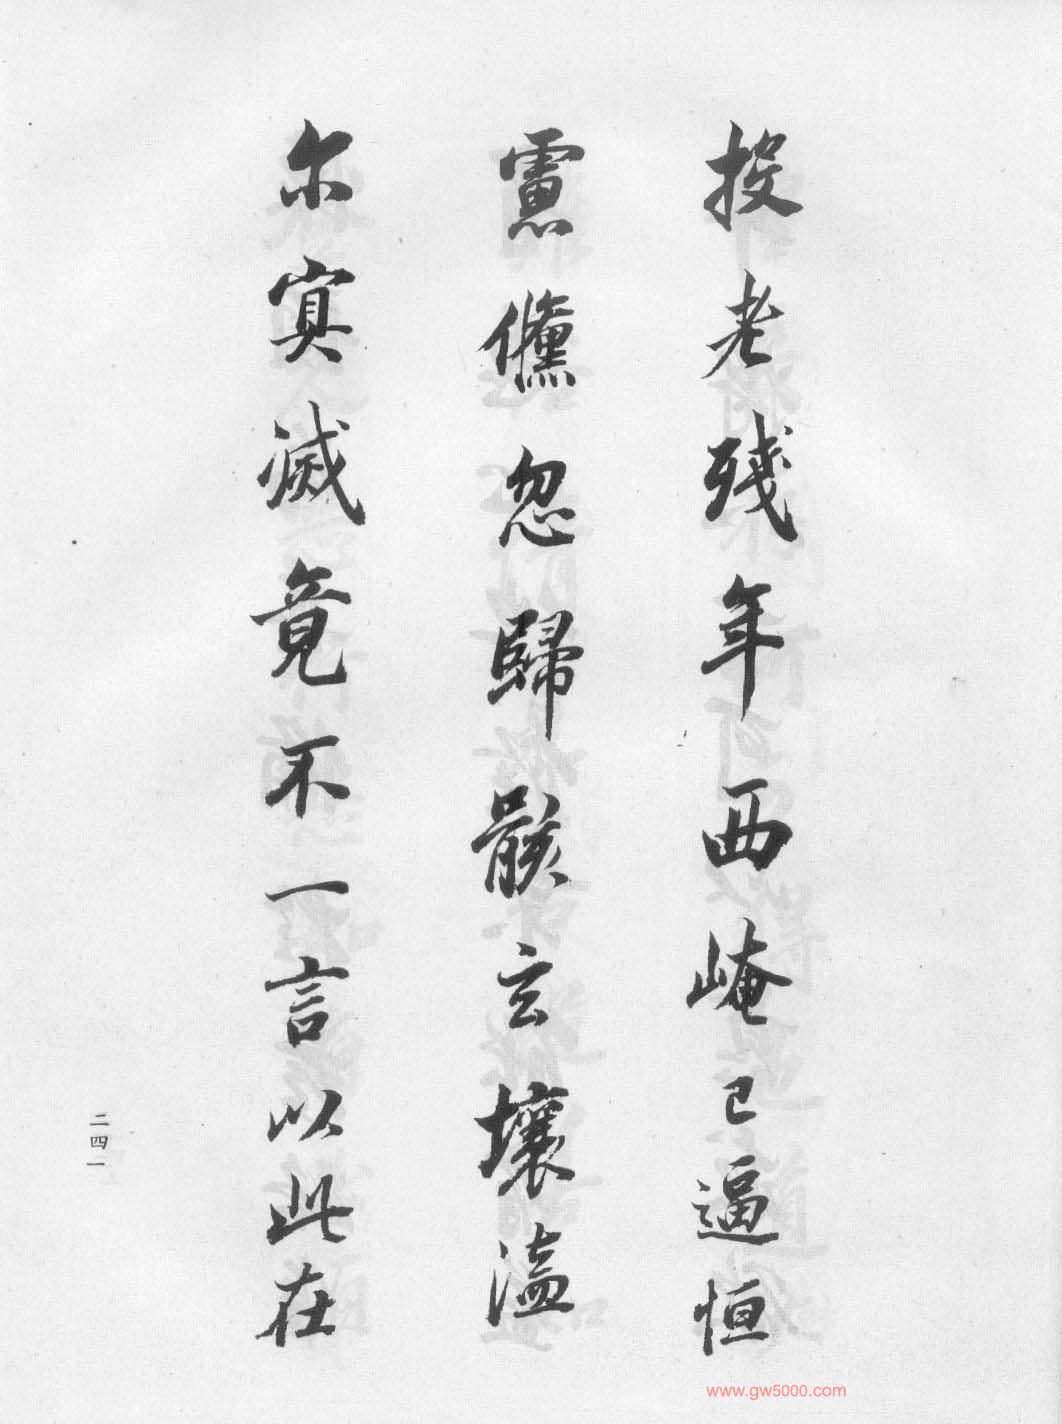 投老残年西崦已逼恒
慮儵忽歸骸玄壤溘
尔寘滅竟不一言以此在
二四一
www.gw5000.com